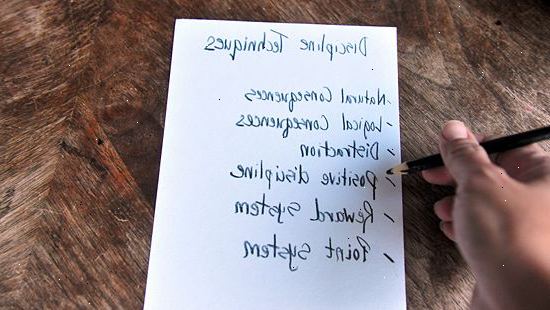 Discipline Techniques
- Natural Consequences
- Logical Consequences
- Distraction
- Positive discipline
- Reward system
- Point system